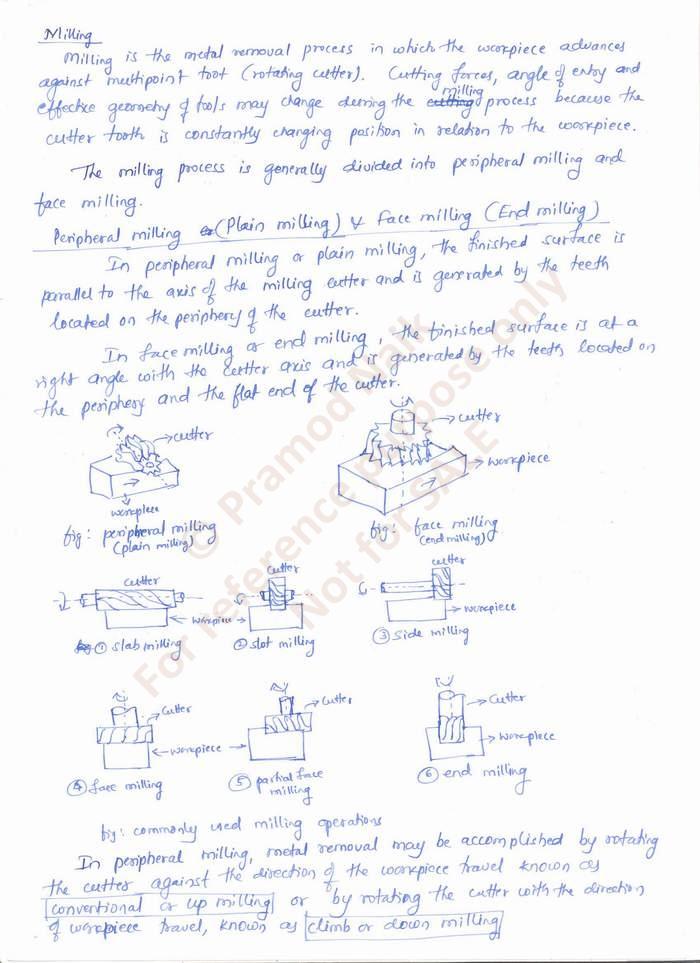 Milling
Milling is the metal removal process in which the workpiece advances
against multipoint tool (rotating cutter). Cutting forces, angle of entry and
effective geometry of tools may change during the milling process because the
cutter tooth is constantly changing position in relation to the workpiece.
The milling process is generally divided into peripheral milling and
face milling.
Peripheral milling or (Plain milling) & Face milling (End milling)
In peripheral milling or plain milling, the finished surface is
parallel to the axis of the milling cutter and is generated by the teeth
located on the periphery of the cutter.
In face milling or end milling, the finished surface is at a
right angle with the cutter axis and is generated by the teeth located on
the periphery and the flat end of the cutter.
cutter
workpiece
fig: peripheral milling
(plain milling)
cutter
workpiece
fig: face milling
(end milling)
cutter
① slab milling
cutter
workpiece
② slot milling
cutter
workpiece
③ side milling
cutter
④ face milling
cutter
workpiece
⑤ partial face
milling
cutter
workpiece
⑥ end milling
fig: commonly used milling operations
In peripheral milling, metal removal may be accomplished by rotating
the cutter against the direction of the workpiece travel known as
conventional or up milling or by rotating the cutter with the direction
of workpiece travel, known as climb or down milling
© Pramod Naik
For reference purpose only
Not for SALE